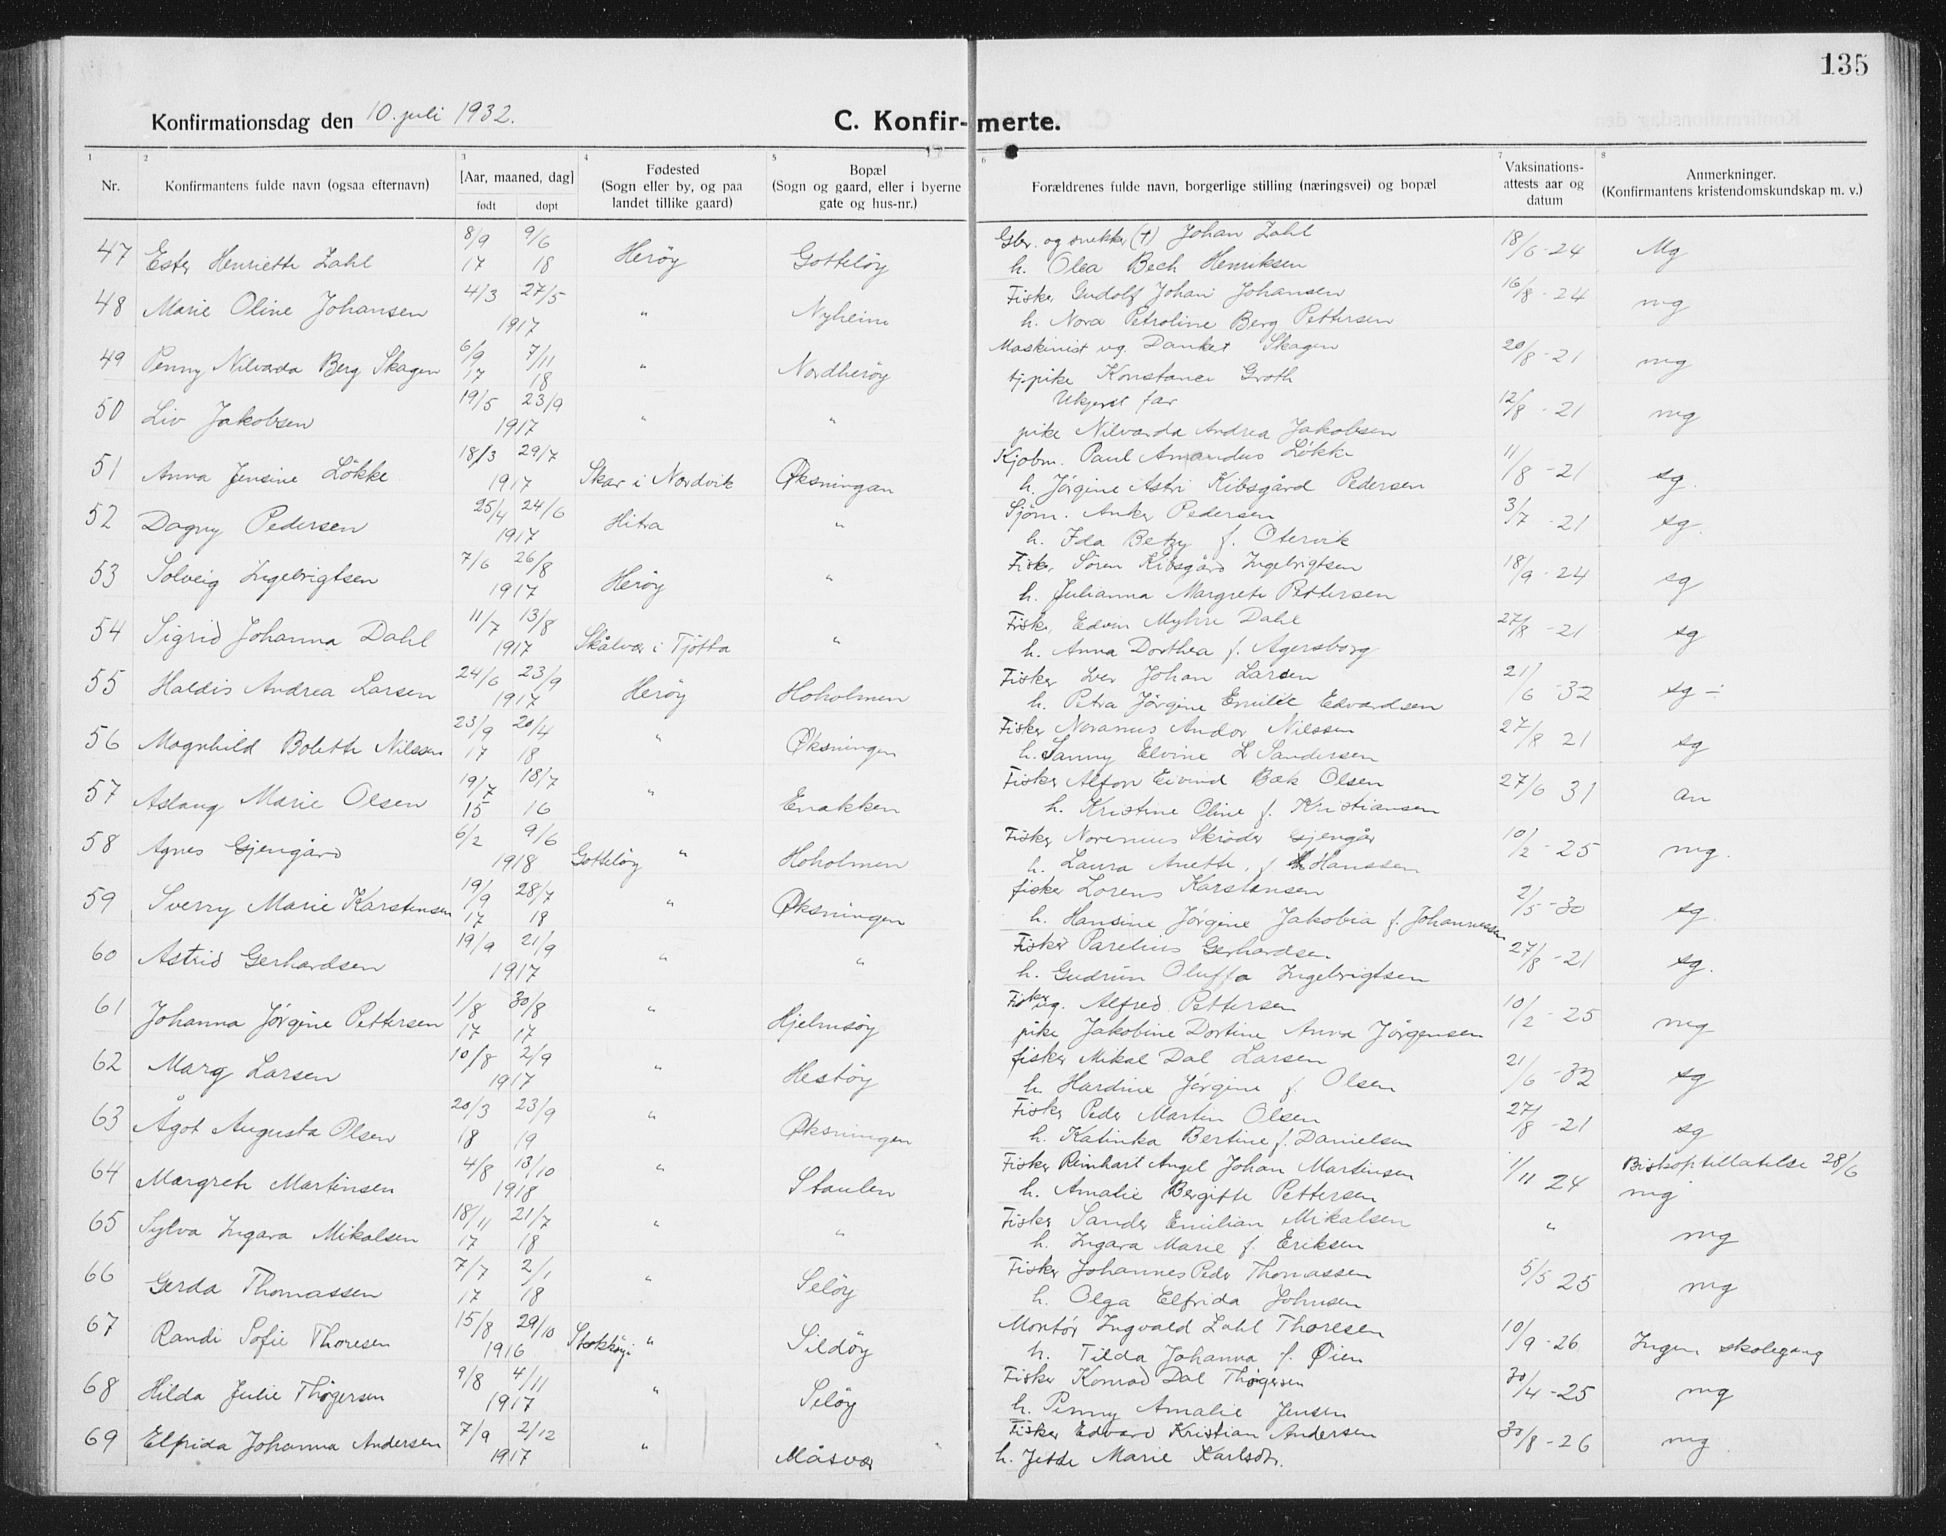 135
Konfirmationsdag den 10. juli 1932.
C. Konfirmerte.
1 2 3 4 5 6 7 8
Nr. Konfirmantens fulde navn (ogsaa efternavn) [Aar, maaned, dag] født døpt Fødested (Sogn eller by, og paa landet tillike gaard) Bopæl (Sogn og gaard, eller i byerne gate og hus-nr.) Forældrenes fulde navn, borgerlige stilling (næringsvei) og bopæl Vaksinations-attests aar og datum Anmerkninger. (Konfirmantens kristendomskundskap m. v.)
47 Ester Henriette Zahl 8/9 17 9/6 18 Herøy Gotteløy Gbr. og snekker (†) Johan Zahl 18/6-24 Mg
h. Olea Bech Henriksen
48 Marie Oline Johansen 4/3 27/5 1917 " Nyheim Fisker Gudolf Johan Johansen 16/8-24 mg
h. Nora Petroline Berg Pettersen
49 Penny Nilvarda Berg Skagen 6/9 17 7/11 18 " Nordherøy Maskinist ug. Dankert Skagen 20/8-21 mg
tj.pike Konstance Groth
50 Liv Jakobsen 19/5 23/9 1917 " " Ukjent far 12/8-21 mg
pike Nilvarda Andrea Jakobsen
51 Anna Jensine Løkke 18/3 29/7 1917 Skar i Nordvik Øksningan Kjøbm. Paul Amandus Løkke 11/8-21 sg.
h. Jørgine Astri Kibsgård Pedersen
52 Dagny Pedersen 25/4 24/6 1917 Hitra " Sjøm. Anker Pedersen 3/7-21 sg.
h. Ida Betzy f. Otervik
53 Solveig Ingebrigtsen 7/6 26/8 1917 Herøy " Fisk. Søren Kibsgård Ingebrigtsen 18/9-24 sg
h. Julianna Margrete Pettersen
54 Sigrid Johanna Dahl 11/7 13/8 1917 Skålvær i Tjøtta " Fisk. Edvin Myhre Dahl 27/8-21 sg
h. Anna Dorthea f. Agersborg
55 Haldis Andrea Larsen 24/6 23/9 1917 Herøy Hoholmen Fisker Iver Johan Larsen 21/6-32 sg -
h. Petra Jørgine Emilie Edvardsen
56 Magnhild Bolette Nilssen 23/9 17 20/4 18 " Øksningen Fisker Noranus Andor Nilssen 27/8 21 sg
h. Sanny Elvine L Sandersen
57 Aslaug Marie Olsen 19/7 15 18/7 16 " Enakken Fisker Alfon Eivind Bæk Olsen 27/6 31 an
h. Kristine Oline f. Kristiansen
58 Agnes Gjengård 6/2 9/6 1918 Gotteløy " Hoholmen Fisker Norenus Skrøder Gjengår 10/2-25 mg.
h. Laura Anette, f. Hanssen
59 Sverry Marie Karstensen 19/9 17 28/7 18 " Øksningen fisker Lorens Karstensen 2/5-30 sg.
h. Hansine Jørgine Jakobia f. Johannessen
60 Astrid Gerhardsen 19/9 21/9 1917 " " Fisker Parelius Gerhardsen 27/8-21 sg.
h. Gudrun Oluffa Ingebrigtsen
61 Johanna Jørgine Pettersen 1/8 17 30/8 17 " Hjelmsøy Fisker ug. Alfred Pettersen 10/2-25 mg
pike Jakobine Dortine Anna Jørgensen
62 Marg Larsen 10/8 2/9 1917 " Hestøy fisker Mikal Dal Larsen 21/6-32 sg
h. Hardine Jørgine f. Olsen
63 Ågot Augusta Olsen 20/3 18 23/9 19 " Øksningen Fisker Peder Martin Olsen 27/8-21 sg
h. Katinka Bertine f. Danielsen
64 Margrete Martinsen 4/8 13/10 1918 " Staulen Fisker Reinhart Angel Johan Martinsen 1/11 24 Biskoptillatelse 28/6
h. Amalie Bergitte Pettersen mg
65 Sylva Ingara Mikalsen 18/11 17 21/7 18 " " Fisker Sander Emilian Mikalsen " mg
h. Ingara Marie f. Eriksen
66 Gerda Thomassen 7/7 17 2/1 18 " Seløy Fisker Johannes Peder Thomassen 5/5 25 mg
h. Olga Elfrida Johnsen
67 Randi Sofie Thoresen 15/8 29/10 1916 " Sildøy Montør Ingvald Zahl Thoresen 10/9-26 Ingen skolegang
h. Tilda Johanna f. Øien
68 Hilda Julie Thøgersen 9/8 4/11 1917 " Seløy Fisker Konrad Dal Thøgersen 30/4-25 mg
h. Penny Amalie Jensen
69 Elfrida Johanna Andersen 7/9 2/12 1917 " Måsvær Fisker Edvard Kristian Andersen 30/8-26 mg
h. Jette Marie Karlsdtr.